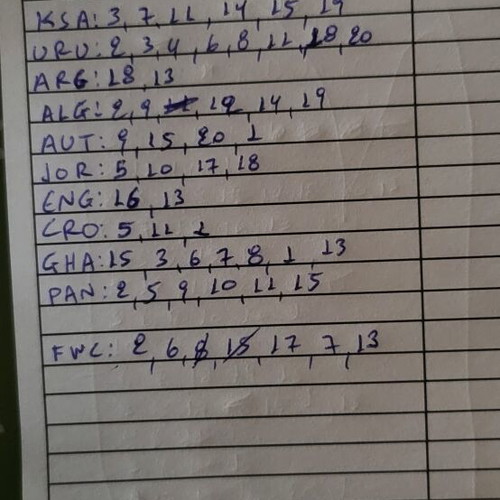 KSA: 3, 7, 11, 14, 15, 19
URU: 2, 3, 4, 6, 8, 11, 18, 20
ARG: 18, 13
ALG: 2, 9, 12, 14, 19
AUT: 9, 15, 20, 1
JOR: 5, 10, 17, 18
ENG: 16, 13
CRO: 5, 11, 1
GHA: 15, 3, 6, 7, 8, 1, 13
PAN: 2, 5, 9, 10, 11, 15
FWC: 2, 6, 8, 15, 17, 7, 13